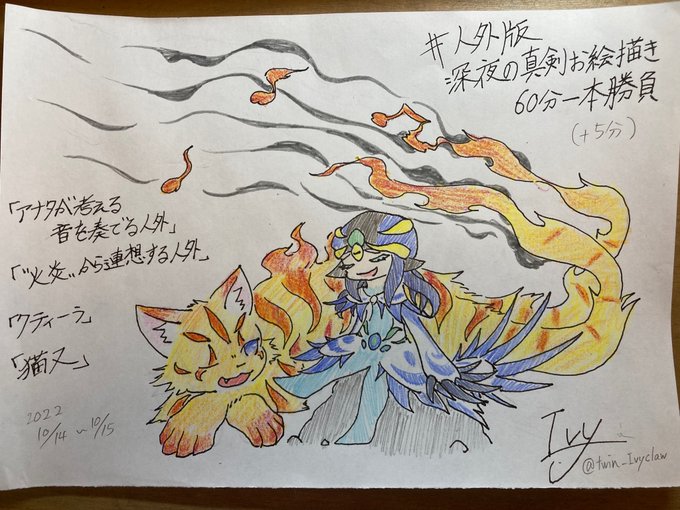 #人外版
深夜の真剣お絵描き
60分一本勝負
(+5分)
「アナタが考える
音を奏でる人外」
「"火炎"から連想する人外」
「クティーラ」
「猫又」
2022
10/14~10/15
Ivy
@twin_Ivyclaw